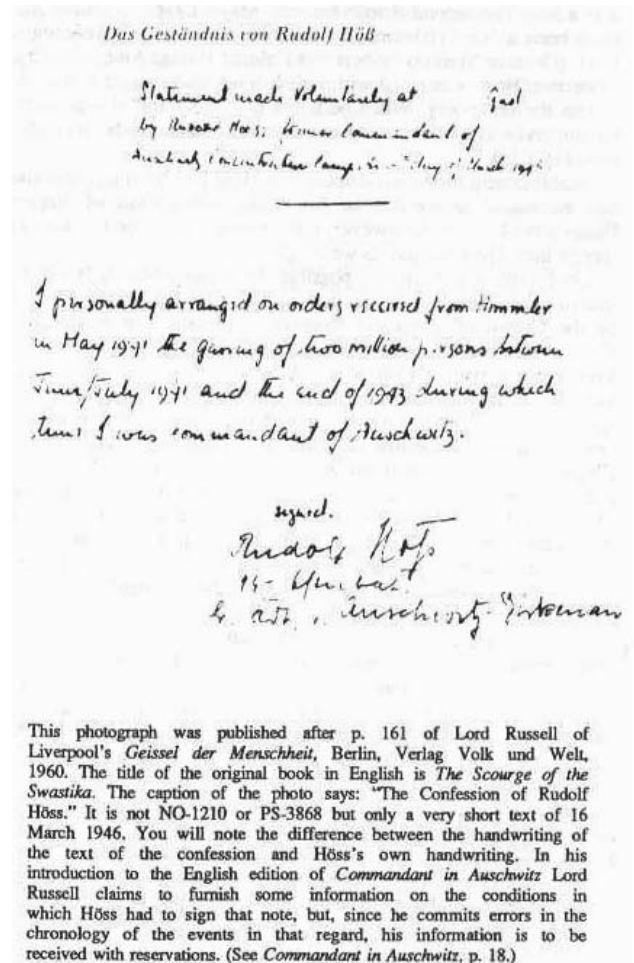 Das Geständnis von Rudolf Höß
Statement made voluntarily at Gaol
by Rudolf Hoess, former Commandant of
Auschwitz Concentration Camp on day of March 1946
I personally arranged on orders received from Himmler
in May 1941 the gassing of two million persons between
June/July 1941 and the end of 1943 during which
time I was commandant of Auschwitz.
signed.
Rudolf Höß
Auschwitz-
This photograph was published after p. 161 of Lord Russell of
Liverpool's Geissel der Menschheit, Berlin, Verlag Volk und Welt,
1960. The title of the original book in English is The Scourge of the
Swastika. The caption of the photo says: "The Confession of Rudolf
Höss." It is not NO-1210 or PS-3868 but only a very short text of 16
March 1946. You will note the difference between the handwriting of
the text of the confession and Höss's own handwriting. In his
introduction to the English edition of Commandant in Auschwitz Lord
Russell claims to furnish some information on the conditions in
which Höss had to sign that note, but, since he commits errors in the
chronology of the events in that regard, his information is to be
received with reservations. (See Commandant in Auschwitz, p. 18.)